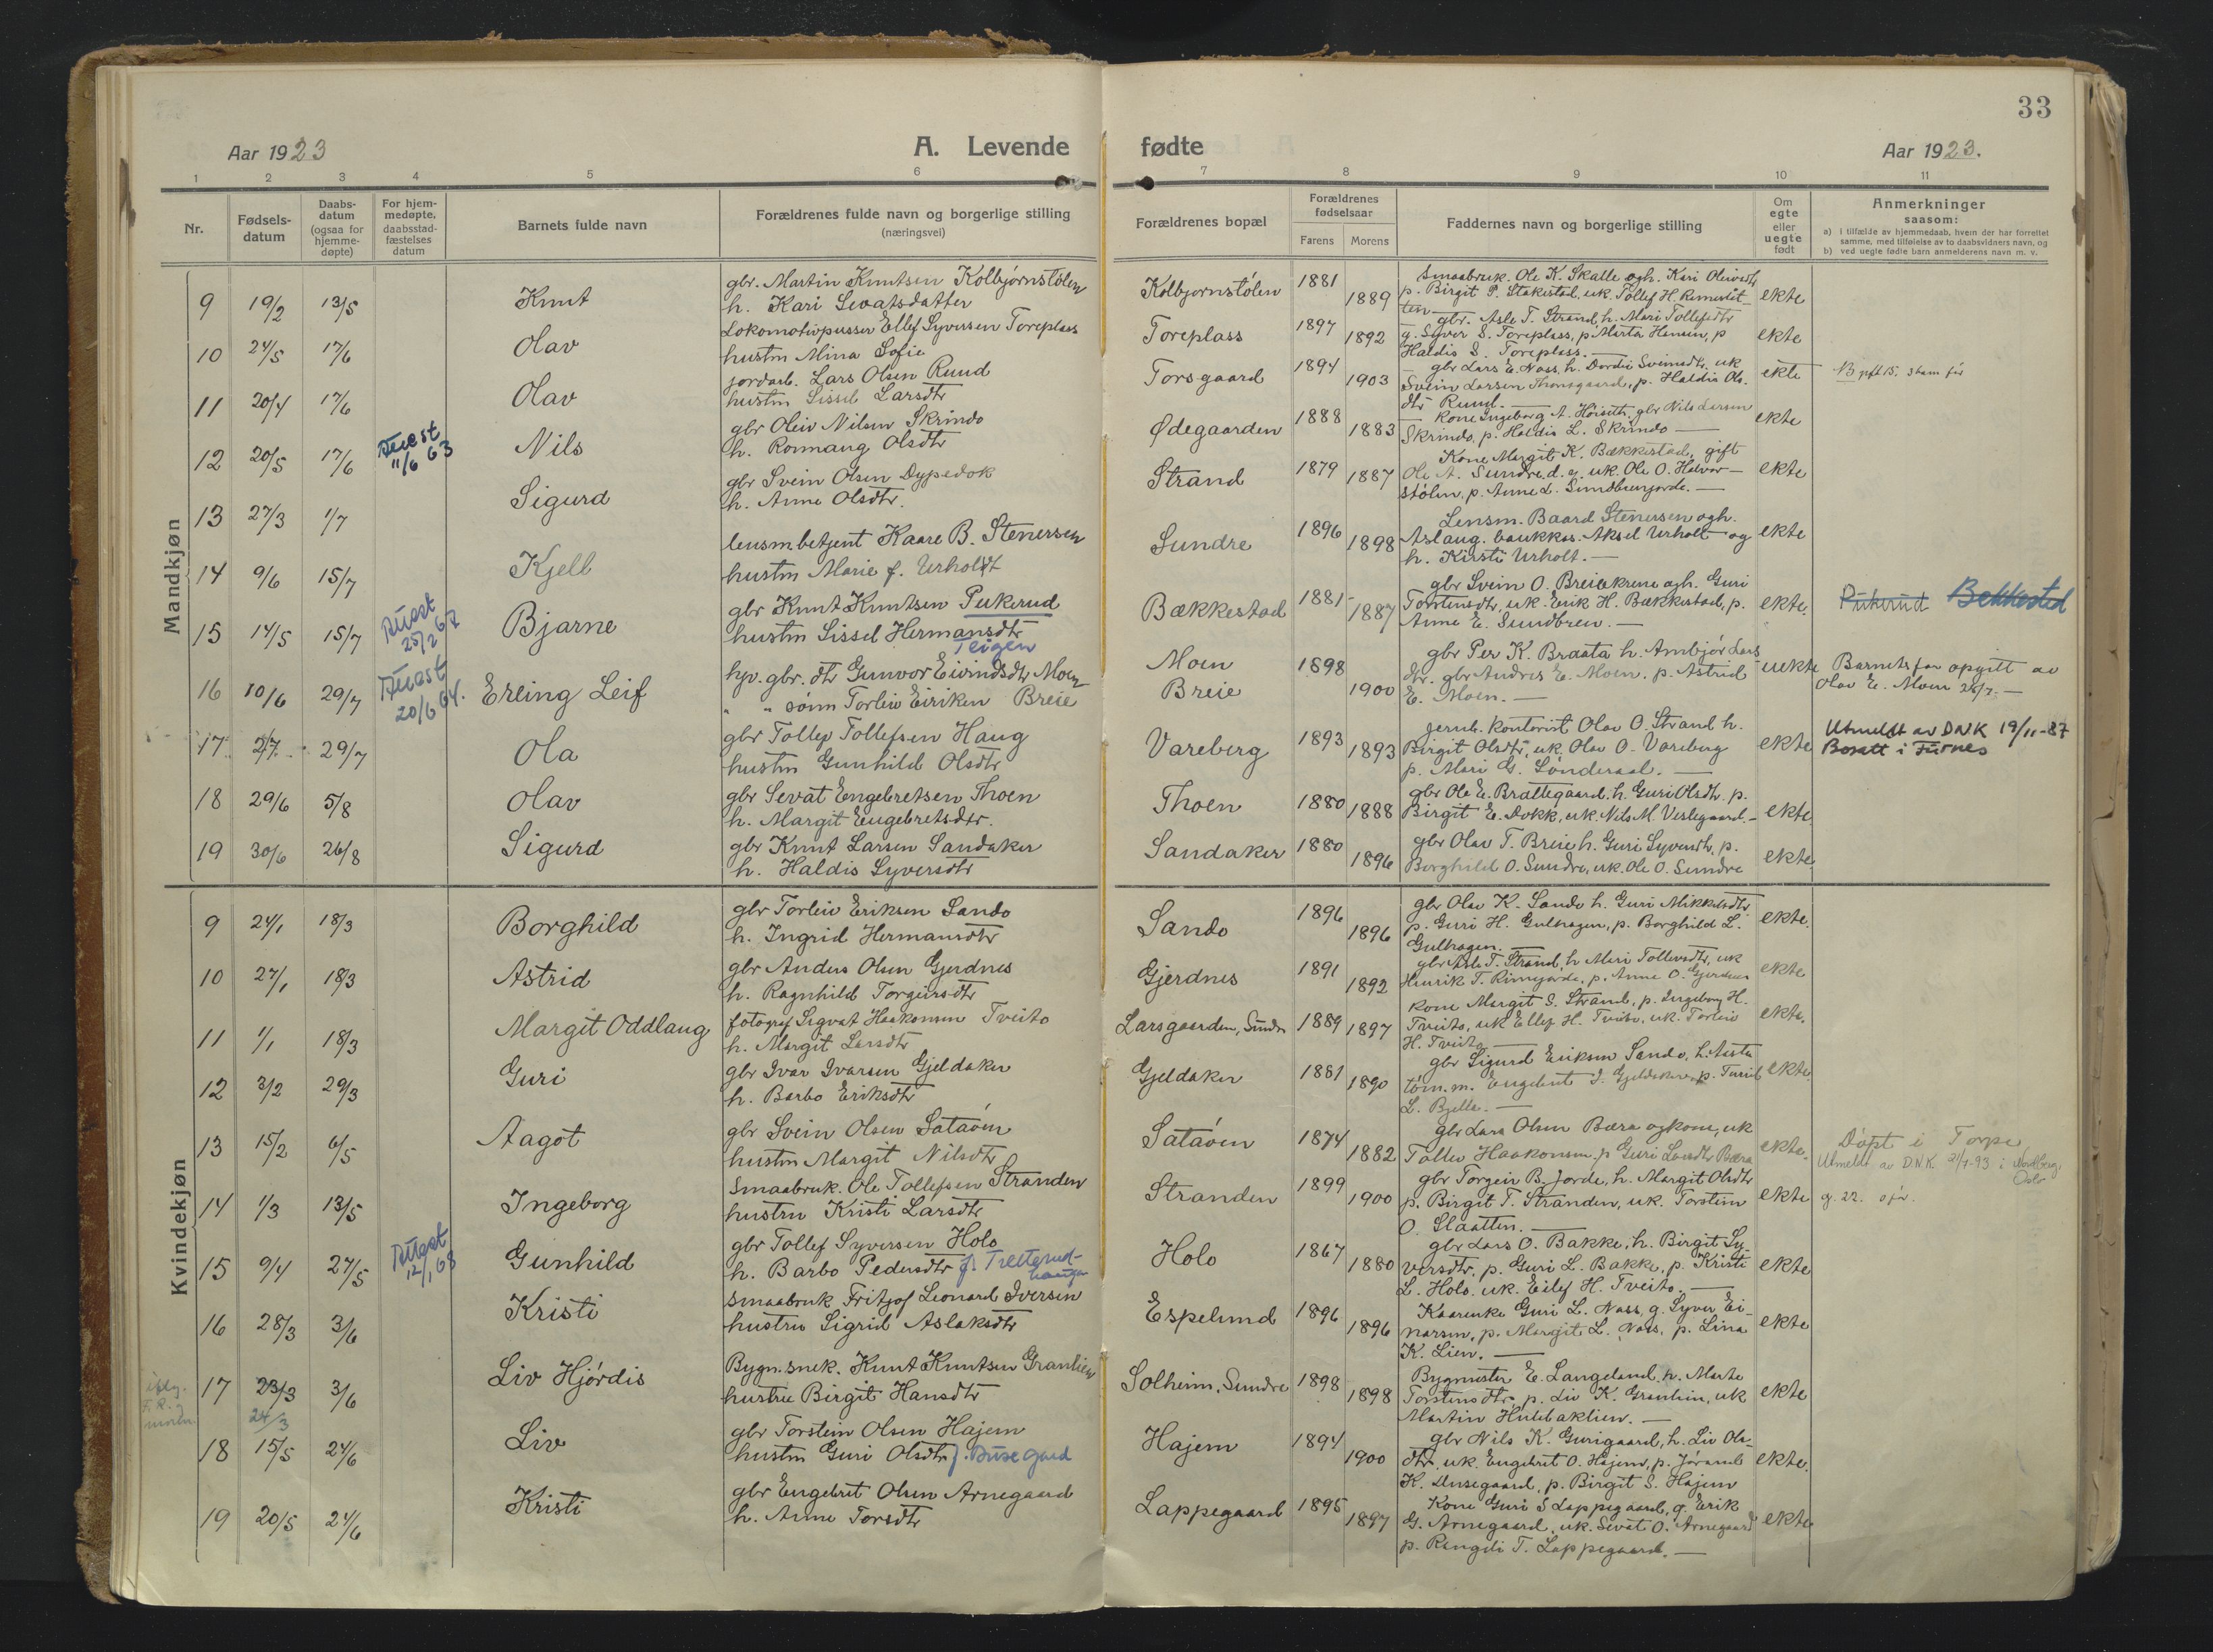 33
Aar 1923
A. Levende fødte
Aar 1923.
1 2 3 4 5 6 7 8 9 10 11
Nr.
Fødsels-
datum
Daabs-
datum
(ogsaa for
hjemme-
døpte)
For hjem-
medøpte,
daabsstad-
fæstelses
datum
Barnets fulde navn
Forældrenes fulde navn og borgerlige stilling
(næringsvei)
Forældrenes bopæl
Forældrenes
fødselsaar
Farens Morens
Faddernes navn og borgerlige stilling
Om
egte
eller
uegte
født
Anmerkninger
saasom:
a) i tilfælde av hjemmedaab, hvem der har forrettet
samme, med tilføielse av to daabsvidners navn, og
b) ved uegte fødte barn anmelderens navn m. v.
Mandkjøn
9 19/2 13/5 Knut
gbr. Martin Knutsen Kolbjørnstølen
h. Kari Sevatsdatter
Kolbjørnstölen 1881 1889
Smaabruk. Ole K. Skalle og h. Kari
p. Birgit P. Stakestad, uk. Tollef H.
ekte
10 24/5 17/6 Olav
Lokomotivpusser Ellef Syversen Toreplass
hustru Mina Sofie
Toreplass 1897 1892
gbr. Asle T. Strand, h. Mari Tollefsdtr
g. Syver S. Toreplass, p. Marta Hansen, p
Haldis S. Toreplass.
ekte
11 20/4 17/6 Olav
jordarb. Lars Olsen Ruud
hustru Sissel Larsdtr
Torsgaard 1894 1903
gbr Lars E. Nass, h. Dordi Svensdtr, uk
Svein Larsen Thorsgaard, p. Haldis Ols-
dtr Ruud.
ekte
12 20/5 17/6 Attest 11/6 63 Nils
gbr Oleiv Nilsen Skrindo
h. Ronnaug Olsdtr
Ødegaarden 1888 1883
Kone Ingeborg A. gbr Nils Larsen
Skrindo, p. Haldis L. Skrindo
ekte
13 27/3 1/7 Sigurd
gbr Svein Olsen Dypedok
h. Anne Olsdtr.
Strand 1879 1887
Kone Margit K. Bækkestad, gift
Ole A. Sundre, uk. Ole O. Halvor-
stølen, p. Anne L.
ekte
14 9/6 15/7 Kjell
lensm.betjent Kaare B. Stenersen
hustru Marie f. Urholdt
Sundre 1896 1898
Lensm. Baard Stenersen og h.
Aslaug. bankkas. Aksel Urholt og
h. Kirsti Urholt.
ekte
15 14/5 15/7 Attest 25/2 67 Bjarne
gbr Knut Knutsen Pukerud
hustru Sissel Hermansdtr
Bækkestad 1881 1887
gbr Svein O. Breiekrene og h. Guri
Torsteinsdtr, uk. Erik H. Bækkestad, p.
Anne E. Sundbren.
ekte. Pukerud Bekkestad
16 10/6 29/7 Attest 20/6 64. Erling Leif
Teigen
hjv. gbr. dtr Gunvor Eivindsdtr Moen
" " sønn Torleiv Eiriksen Breie
Moen
Breie
1898 1900
gbr Per K. Braata h. Ambjör Lars
dtr. gbr Andres E. Moen. p. Astrid
E. Moen.
uekte Barnets far opgitt av
Olav E. Moen 25/7.
17 2/7 29/7 Ola
gbr Tollef Tollefsen Haug
hustru Gunhild Olsdtr
Vareberg 1893 1893
jernb. kontorist Olav O. Strand h.
Birgit Olsdtr, uk. Olav O. Vareberg
p. Mari G. Sønderaal.
ekte Utmeldt av DNK 19/11-87
Bosatt i Furnes
18 29/6 5/8 Olav
gbr Sevat Engebretsen Thoen
h. Margit Engebretsdtr.
Thoen 1880 1888
gbr Ole E. Brattegaard. h. Guri Olsdtr. p.
Birgit E. Dokk, uk. Nils M Veslegaard.
ekte
19 30/6 26/8 Sigurd
gbr Knut Larsen Sandaker
h. Haldis Syversdtr
Sandaker 1880 1896
gbr Olav T. Breie h. Guri Syversdtr, p.
Borghild O. Sundre, uk. Ole O. Sundre
ekte
Kvindekjøn
9 24/1 18/3 Borghild
gbr Torleiv Eriksen Sando
h. Ingrid Hermansdtr
Sando 1896 1896
gbr Olav K. Sando h. Guri Mikkelsdtr
p. Guri H. Gulhagen, p. Borghild L.
Gulhagen.
ekte.
10 27/1 18/3 Astrid
gbr Anders Olsen Gjerdnes
h. Ragnhild Torgeirsdtr
Gjerdnes 1891 1892
gbr Asle T. Strand, h Mari Tollevsdtr, uk
Henrik T. p. Anne O. Gjerdnes
ekte
11 1/1 18/3 Margit Oddlaug
fotograf Sigvat Haakonsen Tveito
h. Margit Larsdtr
Larsgaarden, Sundre 1889 1897
Kone Margit S. Strand, p. Ingeborg H.
Tveito, uk Ellef H. Tveito, uk. Torleiv
H. Tveito
ekte.
12 3/2 29/3 Guri
gbr Ivar Ivarsen Gjeldaker
h. Barbo Eriksdtr
Gjeldaker 1881 1890
gbr Sigurd Eriksen Sando, h. Asta
töm.m. Engebret I. Gjeldaker p. Turid
L. Bjella.
ekte.
13 15/2 6/5 Aagot
gbr Svein Olsen Sataöen
hustru Margit Nilsdtr
Sataöen 1874 1882
gbr Lars Olsen Bæra og kone, uk
Tollev Haakonsen, p Guri Larsdtr Bæra
ekte. Döpt i Torpe
Utmeldt av D.N.K. 21/4-93 i Nordberg,
Oslo
14 1/3 13/5 Ingeborg
Smaabruk. Ole Tollefsen Stranden
hustru Kristi Larsdtr
Stranden 1899 1900
gbr Torgeir B. Jorde, h. Margit Olsdtr
p. Birgit T. Stranden, uk. Torstein
O. Slaatten.
ekte
15 9/4 27/5 Attest 12/1 68 Gunhild
gbr Tollef Syversen Holo
h. Barbo Pedersdtr f. Tretterud-
haugen
Holo 1867 1880
gbr Lars O. Bakke, h. Birgit Sy-
versdtr, p. Guri L. Bakke, p. Kristi
L. Holo. uk. Eilef H. Tveito.
ekte
16 28/3 3/6 Kristi
smaabruk Fritjof Leonard Iversen
hustru Sigrid Aslaksdtr
Espelund 1896 1896
Kaarenke Guri L. Nass, g. Syver Ei-
narsen, p. Margit L. Nass, p. Lina
K. Lien.
ekte
17 23/3 24/3 3/6 Liv Hjördis
Bygn.snek. Knut Knutsen Granlien
hustru Birgit Hansdtr
Solheim, Sundre 1898 1898
Bygmester E. Langeland, h. Marte
Torsteinsdtr, p. Liv K. Granlien, uk
Martin Hulebaklien.
ekte
18 15/5 24/6 Liv
gbr Torstein Olsen Hajem
hustru Guri Olsdtr f. Busegard
Hajem 1894 1900
gbr Nils K. Gurigaard, h. Liv Ols-
dtr. uk. Engebret O. Hajem, p. Jörand
K. p. Birgit S. Hajem
ekte.
19 20/5 24/6 Kristi
gbr Engebret Olsen Arnegaard
h. Anne Torsdtr
Lappegaard 1895 1897
Kone Guri S Lappegaard, g. Erik
G. Arnegaard, uk. Sevat O. Arnegaard
p. Rangdi T. Lappegaard.
ekte